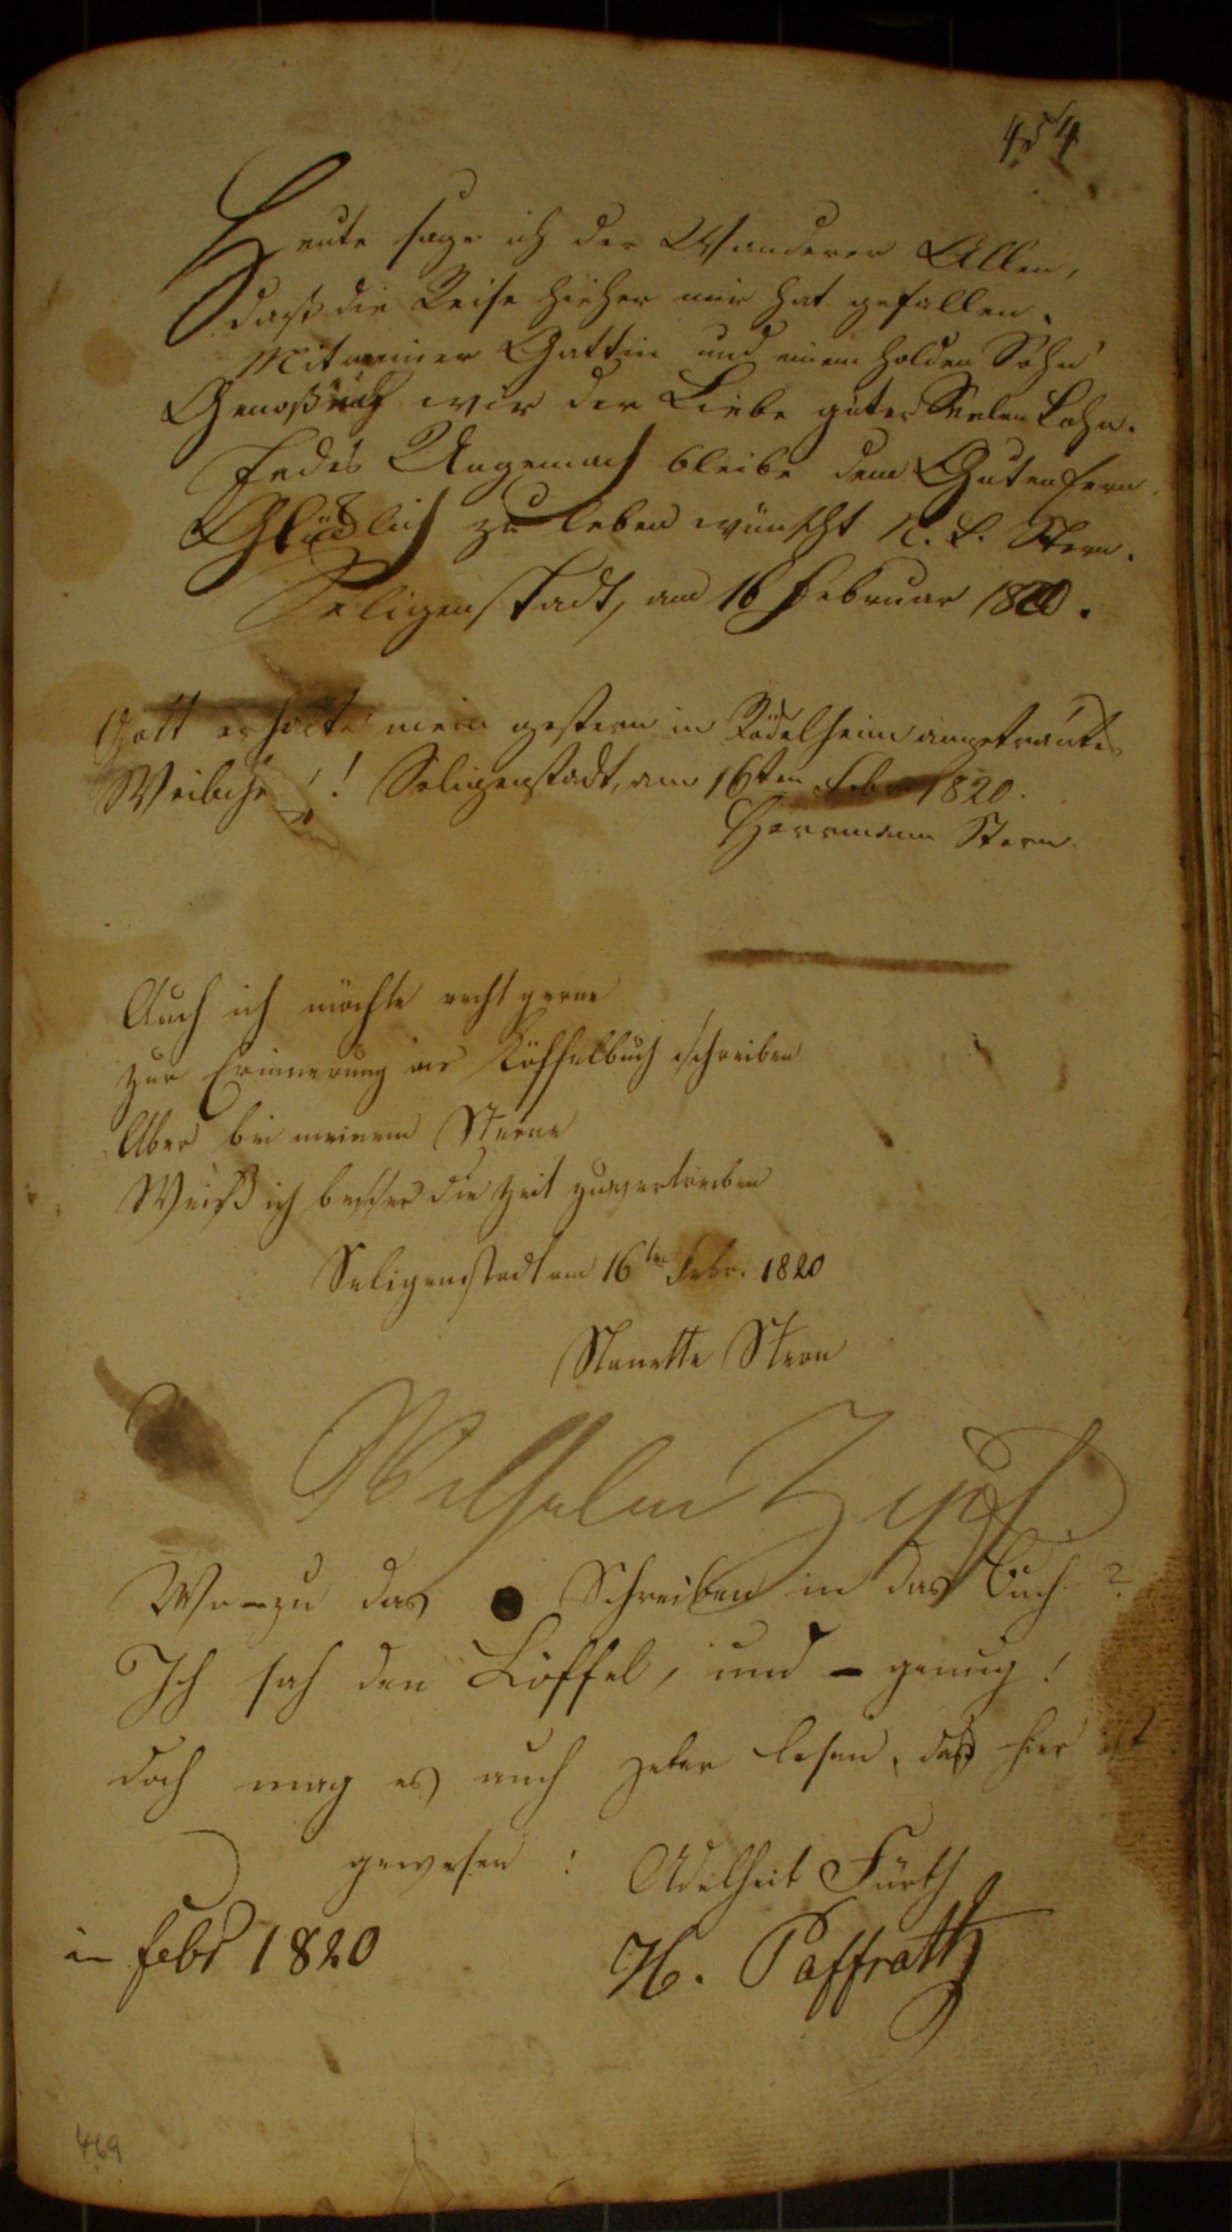 454
Heute sage ich der Wanderer Allen,
Daß die Reise hieher mir hat gefallen.
Mit meiner Gattin und einem holden Sohn
Genoßen wir der Liebe guter Seelen Lohn.
Jedes Ungemach bleibe dem Guten fern
Glücklich zu leben wünscht N. L. Stern.
Seligenstadt, am 16 Februar 1820.
Gott erhalte mein gestern in Rödelheim angetrautes
Weibche ! ! Seligenstadt, am 16ten Febr 1820.
Herrmann Stern.
Auch ich möchte recht gerne
zur Erinnerung ins Löffelbuch schreiben
Aber bei meinem Sterne
Weiß ich besser die Zeit zu vertreiben
Seligenstadt am 16ten Febr. 1820
Nanette Stern
Wilhelm
Wo-zu das Schreiben in das Buch ?
Ich sah den Löffel, und - genug !
doch mag es auch jeder lesen, daß hier ist
gewesen : Adelheit Fürth
in febr 1820 H. Paffrath
469